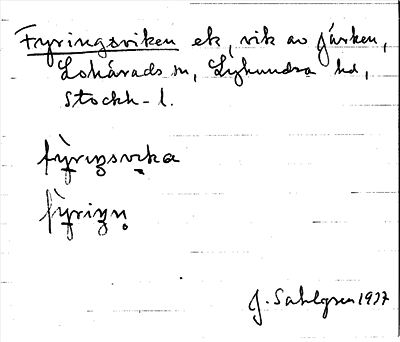 Fyringsviken ek, vik av Järken,
Lohärads sn, Lyhundra hd,
Stockh-l.
fyriŋsvika
fyriŋn̥
J. Sahlgren 1937